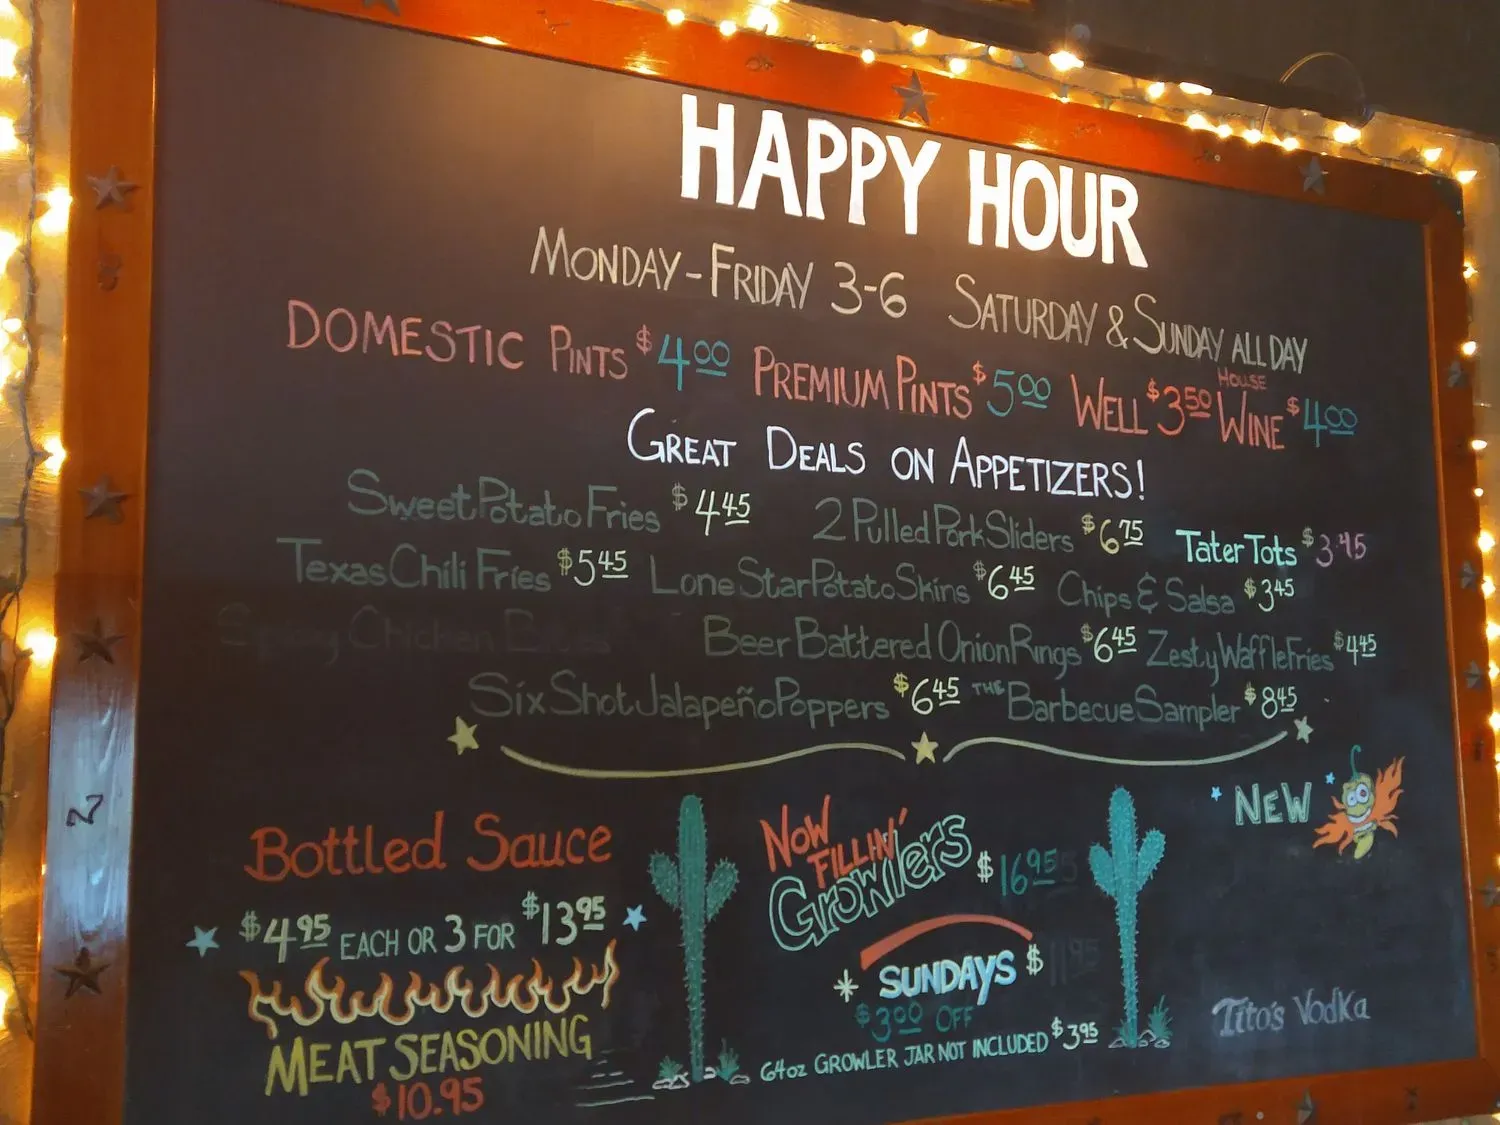 HAPPY HOUR
MONDAY-FRIDAY 3-6 SATURDAY & SUNDAY ALL DAY
DOMESTIC PINTS $4.00 PREMIUM PINTS $5.00 WELL $3.50 HOUSE WINE $4.00
GREAT DEALS ON APPETIZERS!
Sweet Potato Fries $4.45 2 Pulled Pork Sliders $6.75 Tater Tots $3.45
Texas Chili Fries $5.45 Lone Star Potato Skins $6.45 Chips & Salsa $3.45
Chicken Beer Battered Onion Rings $6.45 Zesty Waffle Fries $4.45
Six Shot Jalapeño Poppers $6.45 THE Barbecue Sampler $8.45
Bottled Sauce
$4.95 EACH OR 3 FOR $13.95
MEAT SEASONING
$10.95
NOW FILLIN'
Growlers $16.95
* SUNDAYS $
$3.00 OFF
64oz GROWLER JAR NOT INCLUDED $3.95
NEW
Tito's Vodka
N